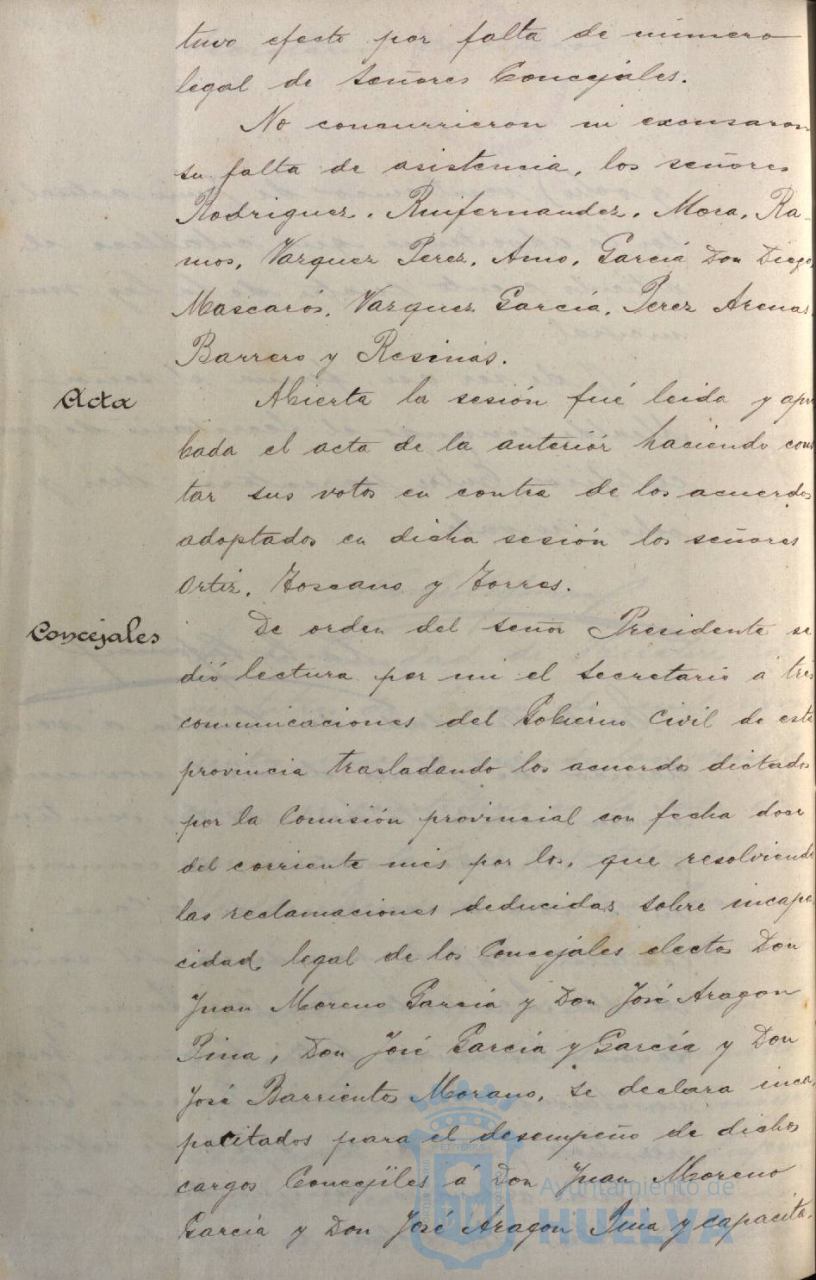 tuvo efecto por falta de número
legal de Señores Concejales.
No concurrieron ni excusaron
su falta de asistencia, los señores
Rodriguez, Ruifernandez, Mora, Ra-
mos, Vazquez Perez, Amo, García Don Diego,
Mascarós, Vazquez García, Perez Arenas,
Barrero y Resinas.
Acta
Abierta la sesión fué leida y apro
bada el acta de la anteriór haciendo cons
tar sus votos en contra de los acuerdos
adoptados en dicha sesión los señores
Ortiz, Toscano y Torres.
Concejales
De orden del señor Presidente se
dió lectura por mi el Secretario á tres
comunicaciones del Gobierno Civil de esta
provincia trasladando los acuerdos dictados
por la Comisión provincial con fecha doce
del corriente mes por los, que resolviendo
las reclamaciones deducidas sobre incapa
cidad legal de los Concejales electos Don
Juan Moreno García y Don José Aragon
Pina, Don José García y García y Don
José Barrientos Morano, se declara inca
pacitados para el desempeño de dichos
cargos Concejiles á Don Juan Moreno
García y Don José Aragon Pina y capacita-
Ayuntamiento de
HUELVA